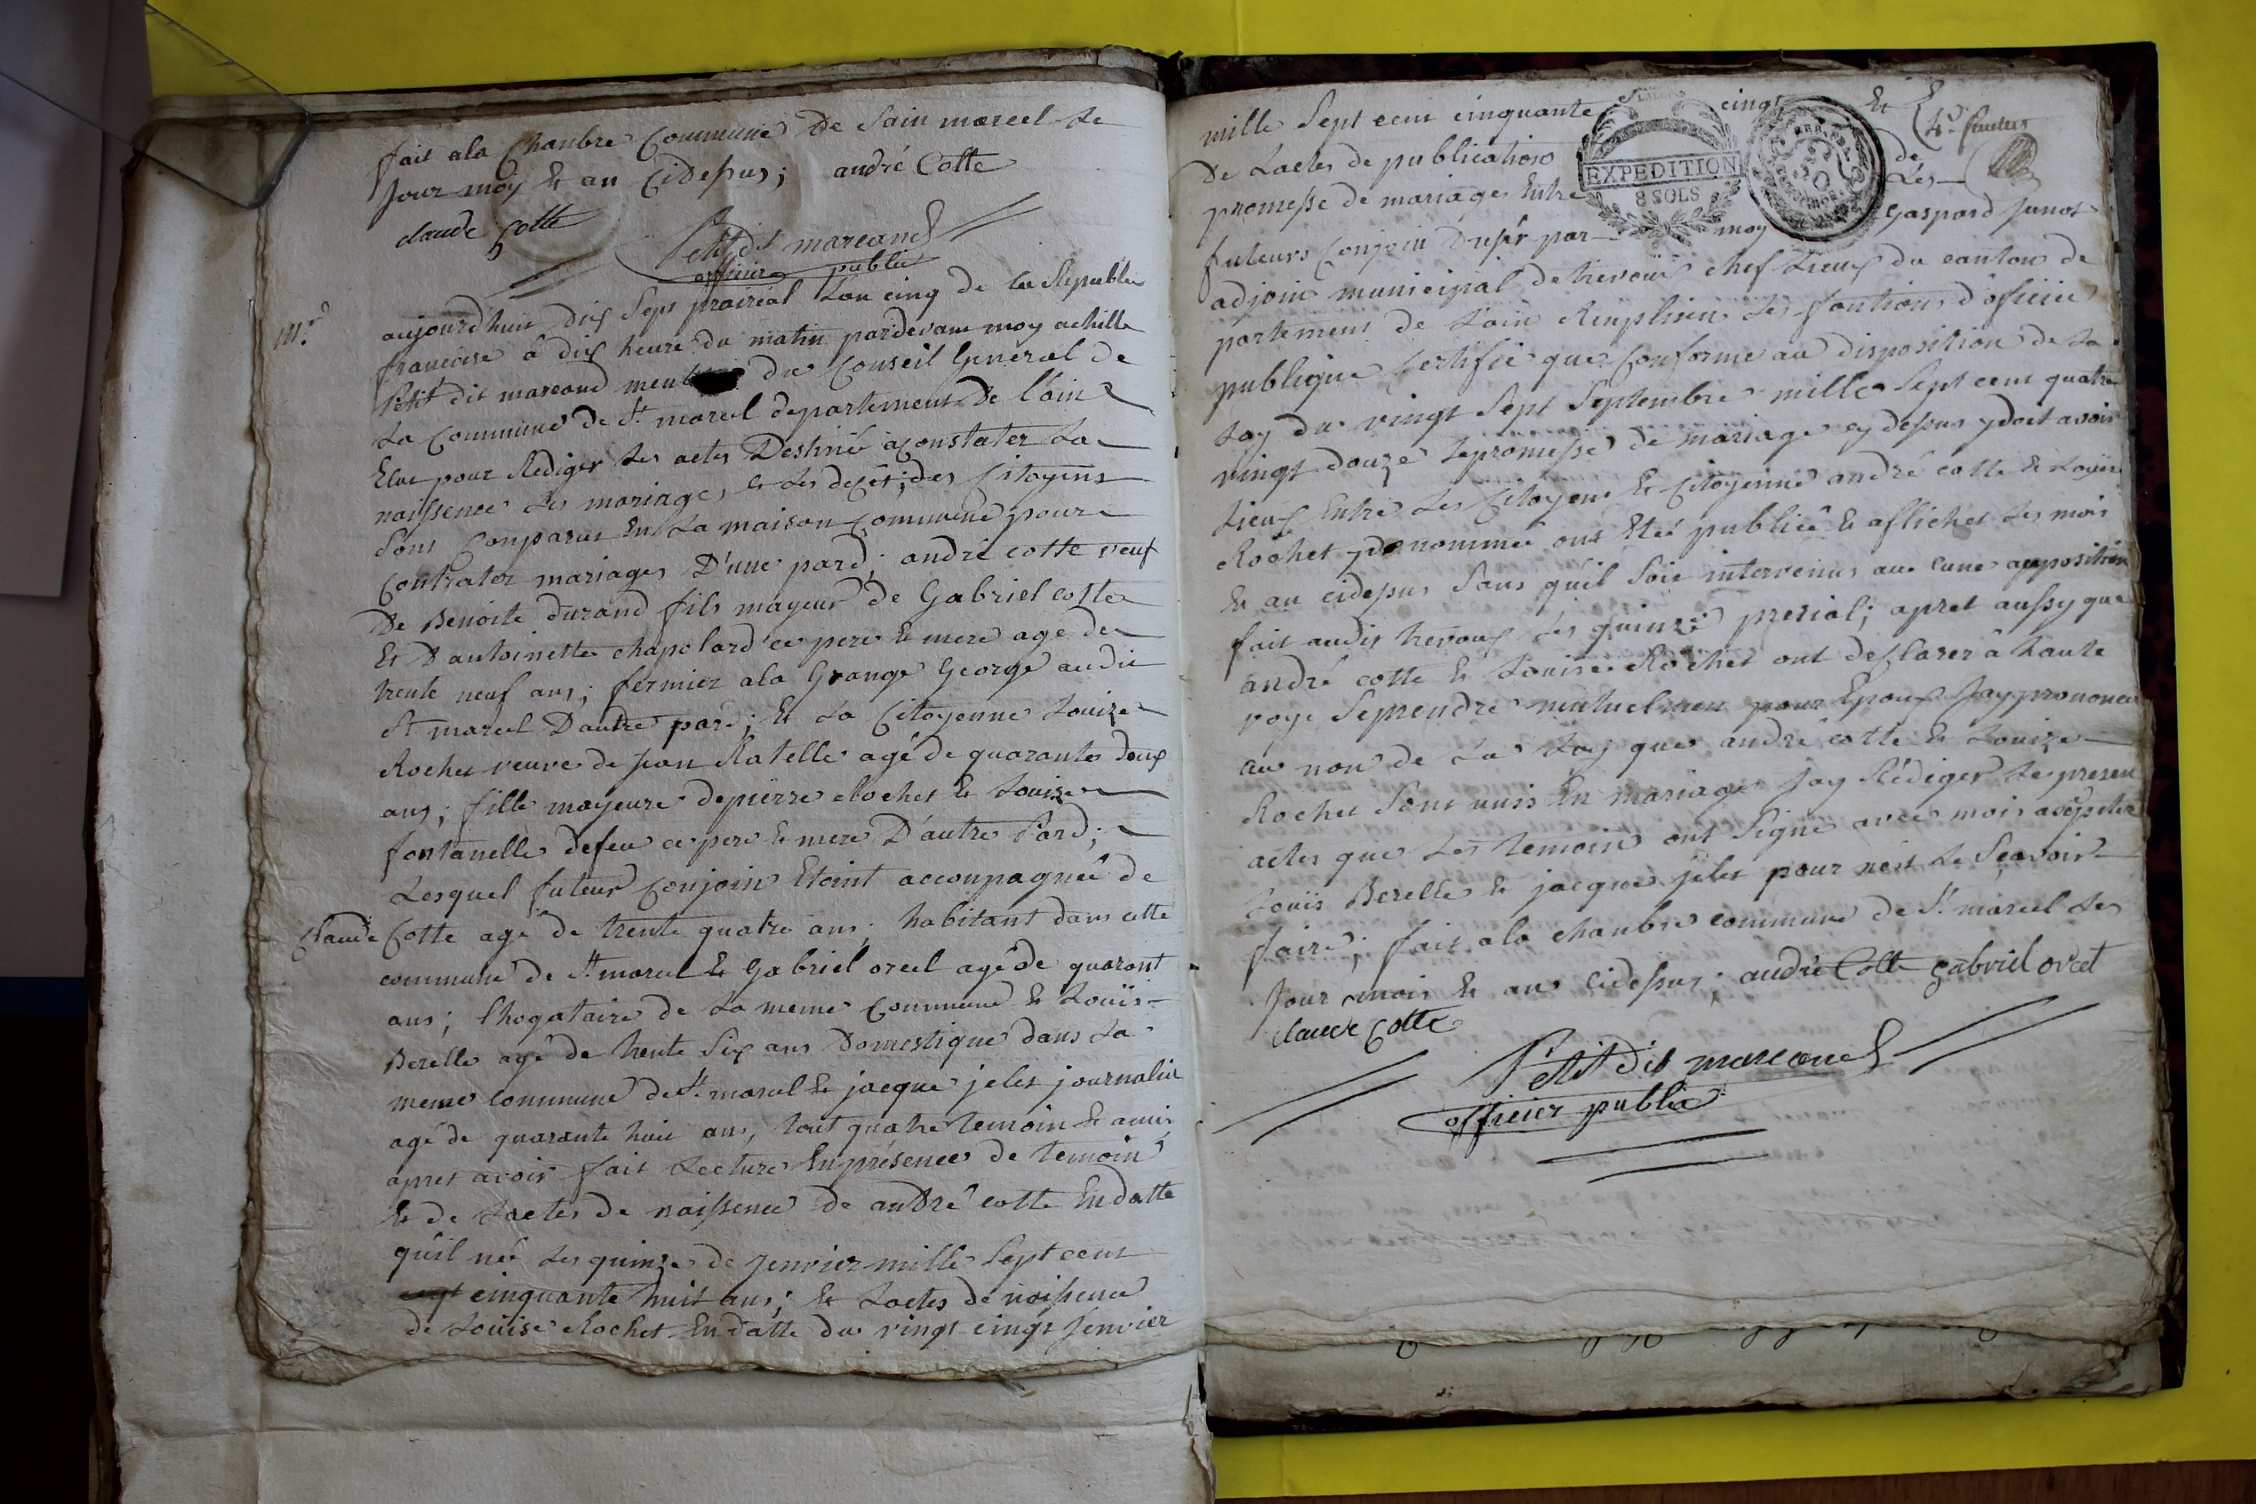 fait ala Chanbre Commune de Sain marcel Le
Jour moy & an Cidesus; andré Cotte
claude Cotte
Petit dit marcand
officier public
M.
aujourdhui dix Sept prairial Lan cinq de la Republi
francoise â dix heure du matin pardevant moy achille
Petit dit marcand du Conseil General de
La Commune de St. marcel departement De L'ain
Elut pour Rédiger Les actes Destinée aconstater La
naissence Les mariages & Les decét; des Citoyens
Sont Conparut En La maison Commune pour
Contrater mariages D'une pard; andré cotte veuf
De Benoite durand fils mayeur de Gabriel cotte
Et D'antoinette chapolard ce pere & mere agé de
trente neuf ans; fermier ala Grange George audit
St marcel D'autre pard; & La Citoyenne Louize
Rochet veuve de Jean Ratelle agé de quarante deux
ans; fille mayeure depierre Rochet & Louize
fontanelle defeu ce pere & mere D'autre Pard;
Lesquel futeur Conjoin Etoint acconpagnée de
Claude Cotte agé de trente quatre ans; habitant dans cette
commune de St marcel & Gabriel orcel agé de quarant
ans; Lhogataire de La meme Commune & Louis
Berelle agé de trente Six ans Domestique dans La
meme commune de St. marcel & jacque jelet journalier
agé de quarante huit ans, tout quatre temoin & amis
apret avoir fait Lecture En présence de temoin
& de Lactes de naissence de andré cotte En datte
qu'il né Les quinze de Jenvier mille Sept cent
cinquante huit ans; & Lactes de naissence
de Louise Rochet En datte du vingt cinqt Jenvier
mille Sept cent cinquante cinqt &
De Lactes de publication de
promesse de mariage Entre Les
futeurs Conjoin Dresér par moy Gaspard Junot
adjoin municipal de trevoux chef Lieux du canton de
partement de L'ain Renplisen Les fontions d'officie
publique Certifie que Conforme au disposition de La
Loy du vingt Sept Septembre mille Sept cent quatre
vingt douze Lepromesse de mariage cy desus ydoit avoir
Lieux Entre Les Citoyen & Citoyenne andré cotte & Louize
Rochet ydenommée ont Eté publiée & affichet Les mois
& an cidesus Sans quil Soie intervenus au cune aupositiion
fait audit trevoux Les quinze prerial; apret aussy que
andré cotte & Louise Rochet ont desclarer â haute
voye Seprendre mutuelmen pour Époux Jay prononcé
au non de La Loy que andré cotte & Louize
Rochet Sont unis En mariage Jay Rédiger Le presen
actes que Les temoin ont Signe avec mois asépeter
Louis Berelle & jacque jelet pour nest Le Seavoir
faire; fait ala chanbre commune de St. marcel Les
Jour mois & an Cidesus; andré Cotte gabriel orcel
claude Cotte
Petit dit marcand
officier public
EXPEDITION
8 SOLS